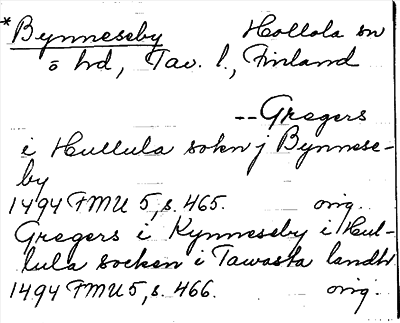 *Bynneseby Hollola sn
ö hd, Tav. l., Finland
--Gregers
i Hullula sokn j Bynnese-
by
1494 FMU 5, s. 465. orig.
Gregers i Kynneseby i Hul-
lula socken i Tawasta landh
1494 FMU 5, s. 466. orig.